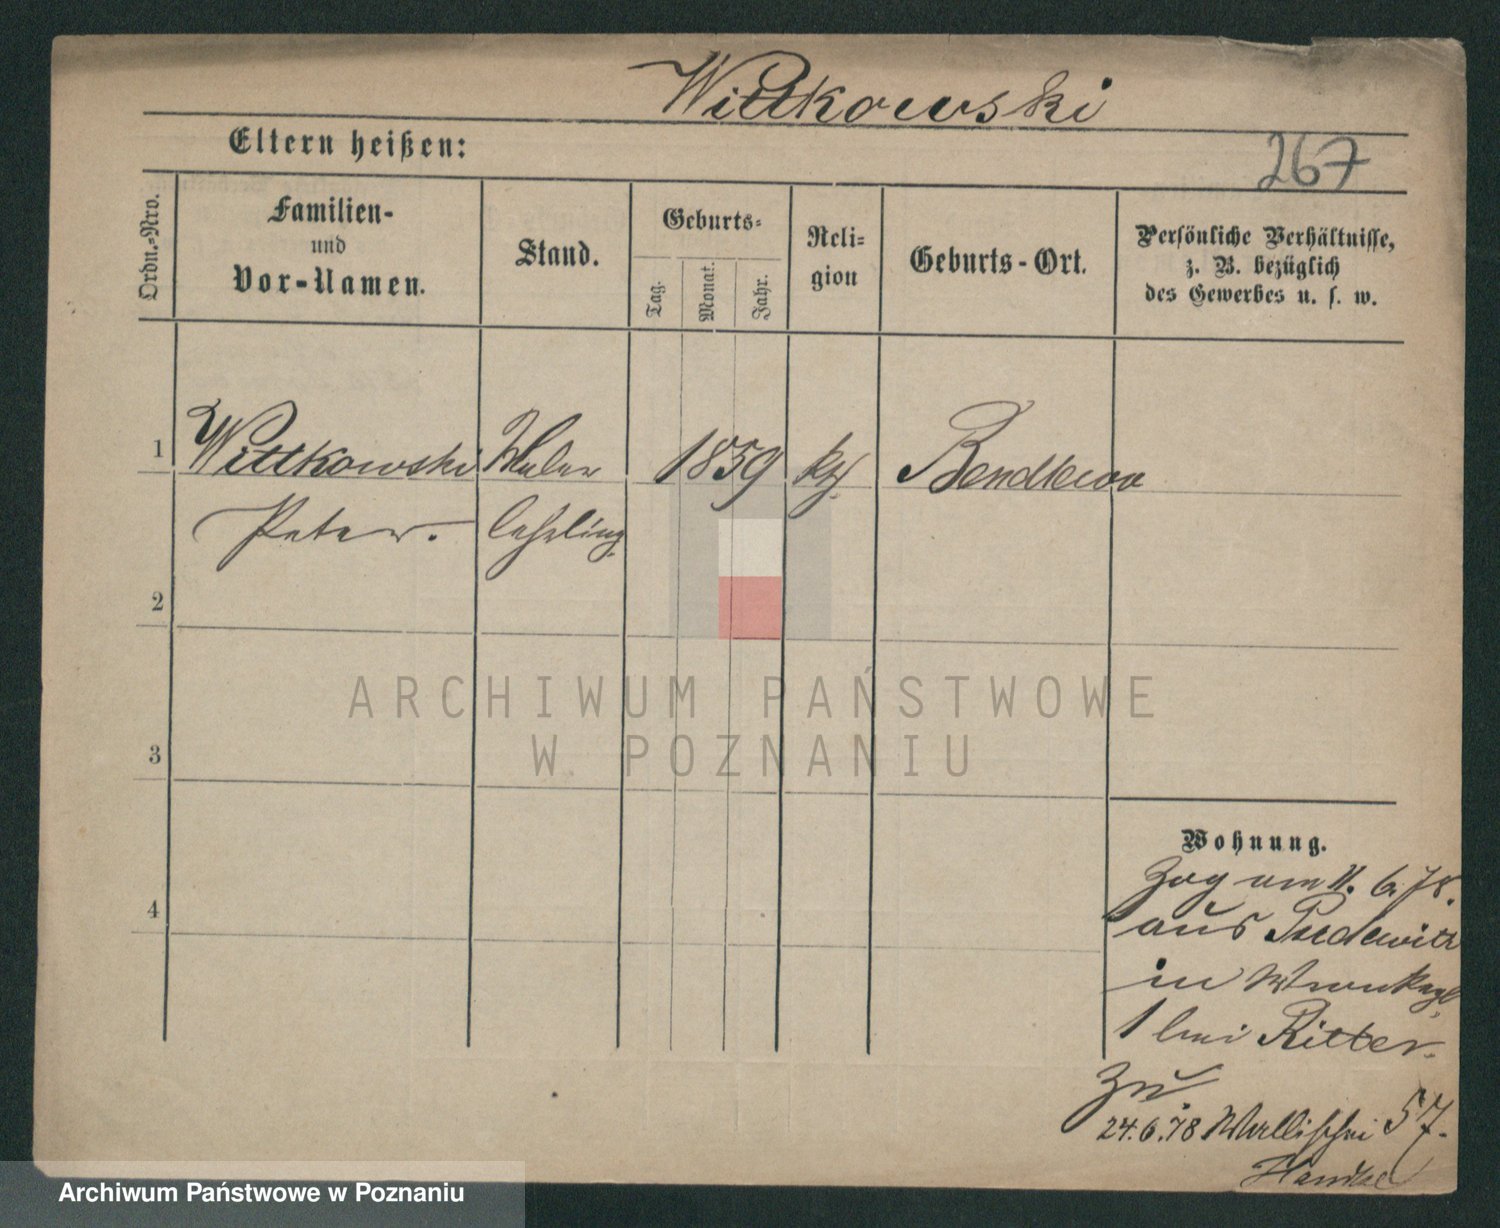 Wittkowski
Eltern heißen:
267
Ordn.-Nro.
Familien-
und
Vor-Namen.
Stand.
Geburts-
Tag.
Monat.
Jahr.
Reli-
gion
Geburts-Ort.
Persönliche Verhältnisse,
z. B. bezüglich
des Gewerbes u. s. w.
1 Wittkowski Maler 1859 kth. Bendlewo
Peter. lehrling.
2
3
4
ARCHIWUM PAŃSTWOWE
W POZNANIU
Wohnung.
Zog am 11. 6. 78.
aus
in
1 bei Ritter.
zu
24.6.78 Wallischei 57.
Archiwum Państwowe w Poznaniu